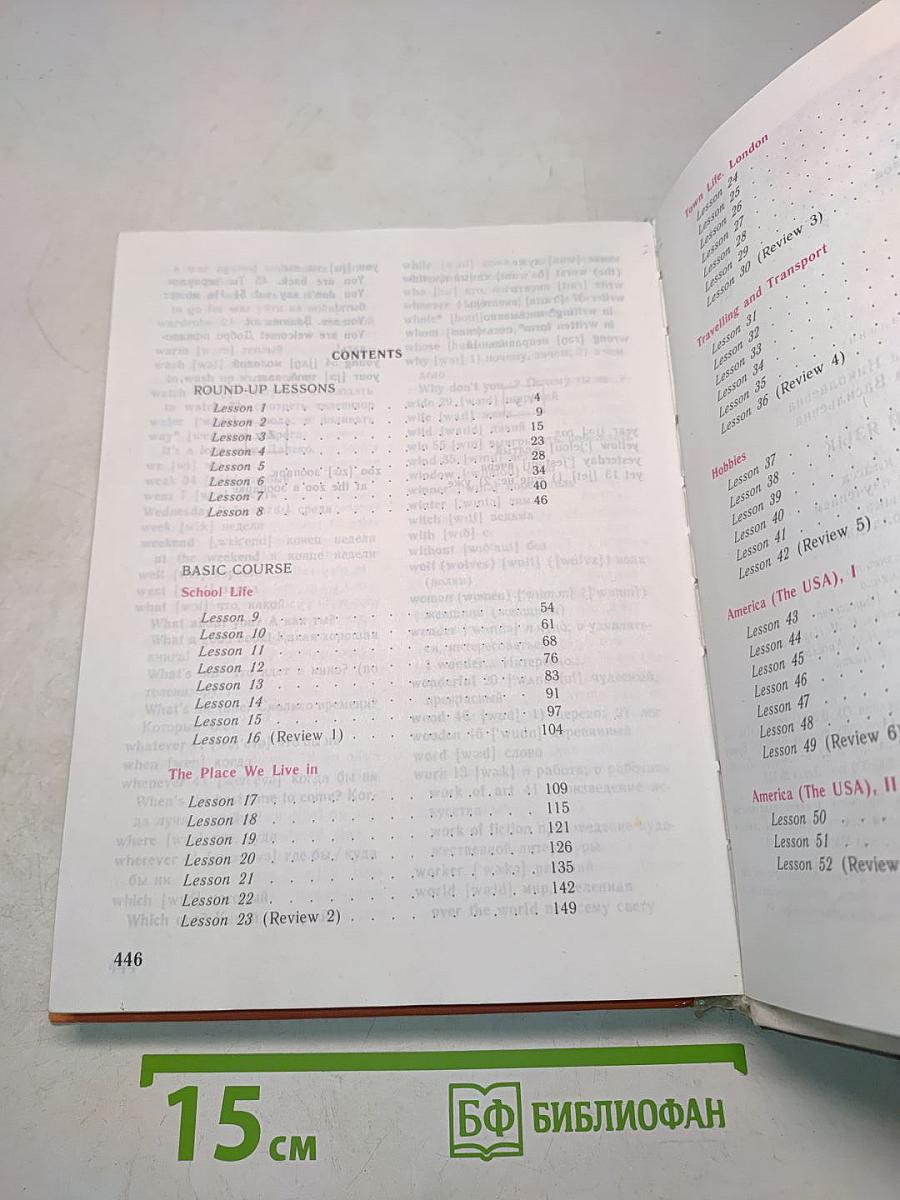 CONTENTS
ROUND-UP LESSONS
Lesson 1 . . . 4
Lesson 2 . . . 9
Lesson 3 . . . 15
Lesson 4 . . . 23
Lesson 5 . . . 28
Lesson 6 . . . 34
Lesson 7 . . . 40
Lesson 8 . . . 46
BASIC COURSE
School Life
Lesson 9 . . . 54
Lesson 10 . . . 61
Lesson 11 . . . 68
Lesson 12 . . . 76
Lesson 13 . . . 83
Lesson 14 . . . 91
Lesson 15 . . . 97
Lesson 16 (Review 1) . . . 104
The Place We Live in
Lesson 17 . . . 109
Lesson 18 . . . 115
Lesson 19 . . . 121
Lesson 20 . . . 126
Lesson 21 . . . 135
Lesson 22 . . . 142
Lesson 23 (Review 2) . . . 149
446
Town Life. London
Lesson 24
Lesson 25
Lesson 26
Lesson 27
Lesson 28
Lesson 29
Lesson 30 (Review 3)
Travelling and Transport
Lesson 31
Lesson 32
Lesson 33
Lesson 34
Lesson 35
Lesson 36 (Review 4)
Hobbies
Lesson 37
Lesson 38
Lesson 39
Lesson 40
Lesson 41
Lesson 42 (Review 5)
America (The USA), I
Lesson 43
Lesson 44
Lesson 45
Lesson 46
Lesson 47
Lesson 48
Lesson 49 (Review 6)
America (The USA), II
Lesson 50
Lesson 51
Lesson 52 (Review
15 см
БФ БИБЛИОФАН